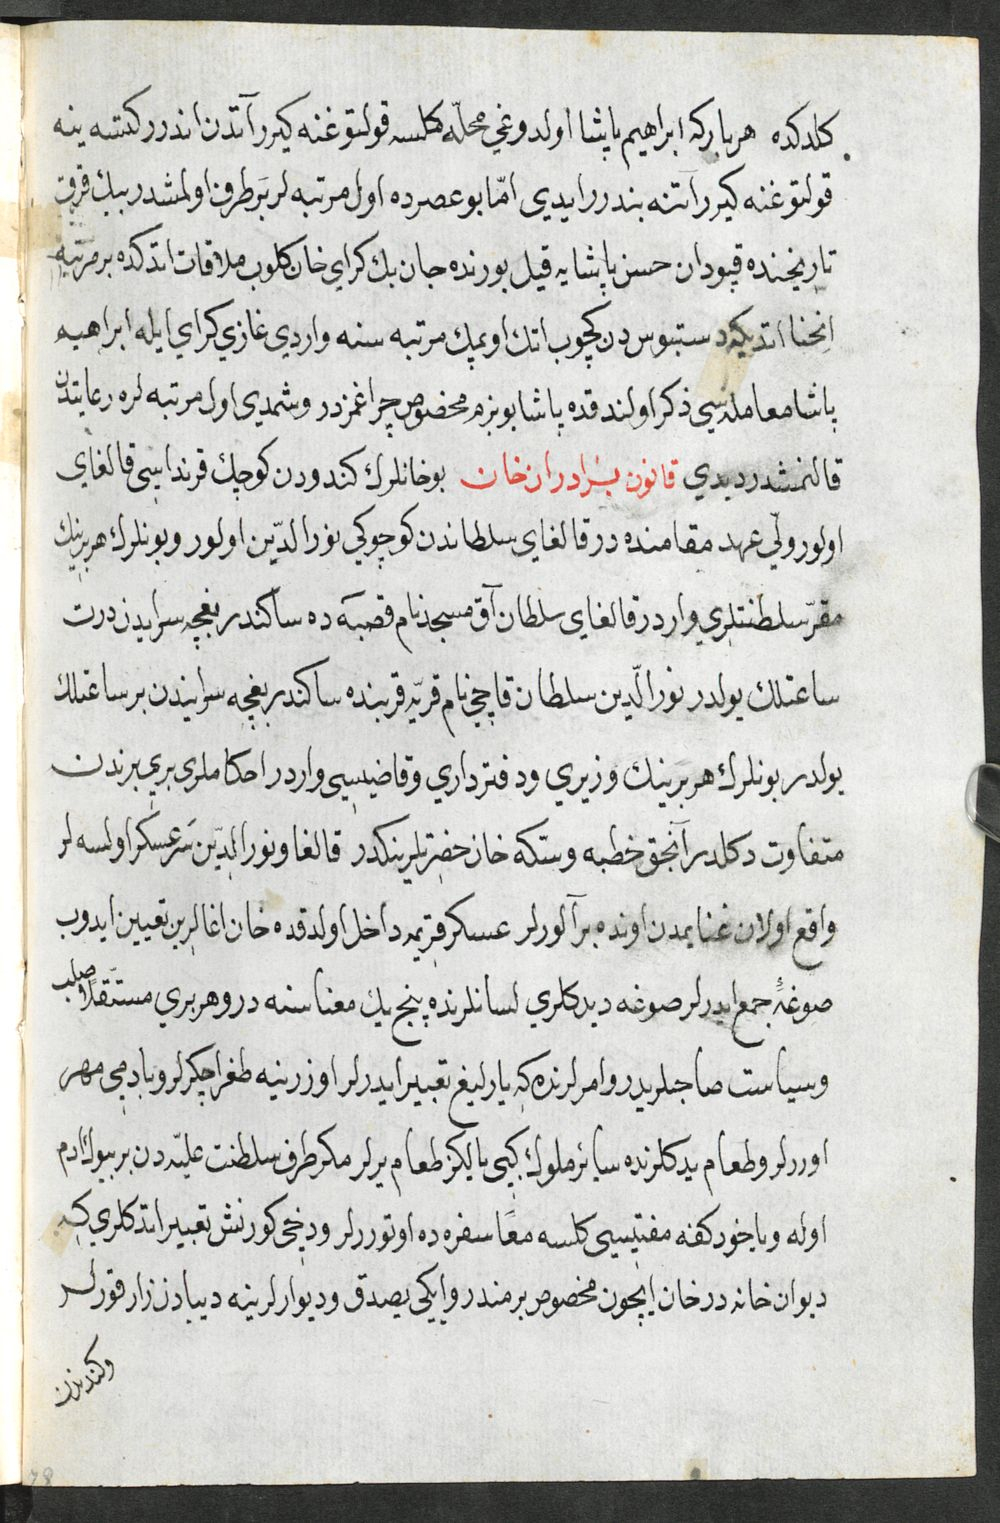 كلدكده هربار كه ابراهيم پاشا اولدوغي محلّه كلسه قولتوغنه كيرر آتدن اندرر كتسه ينه
قولتوغنه كيرر آتنه بندرر ايدي امّا بو عصرده اول مرتبه لر بر طرف اولمشدر بيك قرق
تاريخنده قپودان حسن پاشايه قيل بورنده جان بك كراي خان كلوب ملاقات اتدكده بر مرتبه
انحنا اتديكه دستبوس دن كچوب اتك اوپمك مرتبه سنه واردي غازي كراي ايله ابراهيم
پاشا معامله سي ذكر اولندقده پاشا بو بزم مخصوص چراغمزدر و شمدي اول مرتبه لره رعايتدن
قالنمشدر ديدي قانون برادران خان بو خانلرك كندودن كوچك قرنداسي قالغاي
اولور وليّ عهد مقامنده در قالغاي سلطاندن كوچوكي نورالدّين اولور و بونلرك هر برينك
مقرّ سلطنتلري واردر قالغاي سلطان آق مسجد نام قصبه ده ساكندر بغچه سرايدن درت
ساعتلك يولدر نورالدّين سلطان قاچي نام قريه قربنده ساكندر بغچه سرايندن بر ساعتلك
يولدر بونلرك هر برينك وزيري و دفترداري و قاضيسي واردر احكاملري بري برندن
متفاوت دكلدر آنجق خطبه و سكه خان حضرتلرينكدر قالغا و نورالدّين سرعسكر اولسه لر
واقع اولان غنايمدن اونده بر آلورلر عسكر قريمه داخل اولدقده خان اغالرين تعيين ايدوب
صوغه جمع ايدرلر صوغه ديدكلري لسانلرنده پنج يك معناسنه در و هر بري مستقلاً صلب
و سياست صاحبلريدر و امرلرنده كه يارليغ تعبير ايدرلر اوزرينه طغرا چكرلر و بادمي مهر
اوررلر و طعام يدكلرنده سائر ملوك كبي يالكز طعام يرلر مكر طرف سلطنت عليّه دن بر بيوك ادم
اوله و ياخود كفه مفتيسي كلسه معًا سفره ده اوتوررلر و دخي كورنش تعبير اتدكلري كه
ديوان خانه در خان ايچون مخصوص بر مندر و ايكي يصدق و ديوارلرينه ديبادن زار قورلر
و كندودن